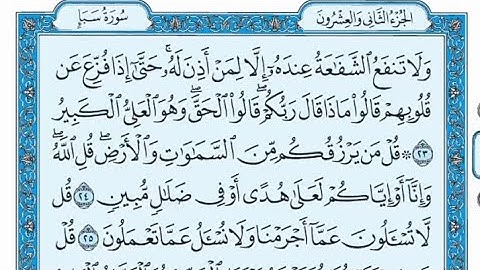 الجزء الثاني والعشرون سورة سبإ
وَلَا تَنفَعُ ٱلشَّفَـٰعَةُ عِندَهُۥٓ إِلَّا لِمَنْ أَذِنَ لَهُۥ ۚ حَتَّىٰٓ إِذَا فُزِّعَ عَن
قُلُوبِهِمْ قَالُوا۟ مَاذَا قَالَ رَبُّكُمْ ۖ قَالُوا۟ ٱلْحَقَّ ۖ وَهُوَ ٱلْعَلِىُّ ٱلْكَبِيرُ
٢٣ ۞ قُلْ مَن يَرْزُقُكُم مِّنَ ٱلسَّمَـٰوَٰتِ وَٱلْأَرْضِ ۖ قُلِ ٱللَّهُ ۖ
وَإِنَّآ أَوْ إِيَّاكُمْ لَعَلَىٰ هُدًى أَوْ فِى ضَلَـٰلٍ مُّبِينٍ ٢٤ قُل
لَّا تُسْـَٔلُونَ عَمَّآ أَجْرَمْنَا وَلَا نُسْـَٔلُ عَمَّا تَعْمَلُونَ ٢٥ قُلْ